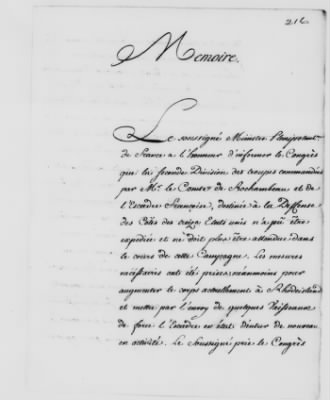 216
Memoire.
Le soussigné Ministre Plenipotent.
de France a l'honneur d'informer le Congrès
que la seconde Division des troupes commandées
par Mr. le Comte de Rochambeau et de
l'Escadre françoise, destinée à la Deffense
des Côtes des treize Etats unis n'a pû être
expédiée et ne doit plus être attendue dans
le cours de cette Campagne. Les mesures
nécessaires ont été prises néanmoins pour
augmenter le corps actuellement à Rhode-island
et mettre par l'envoy de quelques Vaisseaux
de force l'Escadre en état d'entrer de nouveau
en activité. Le Soussigné prie le Congrès